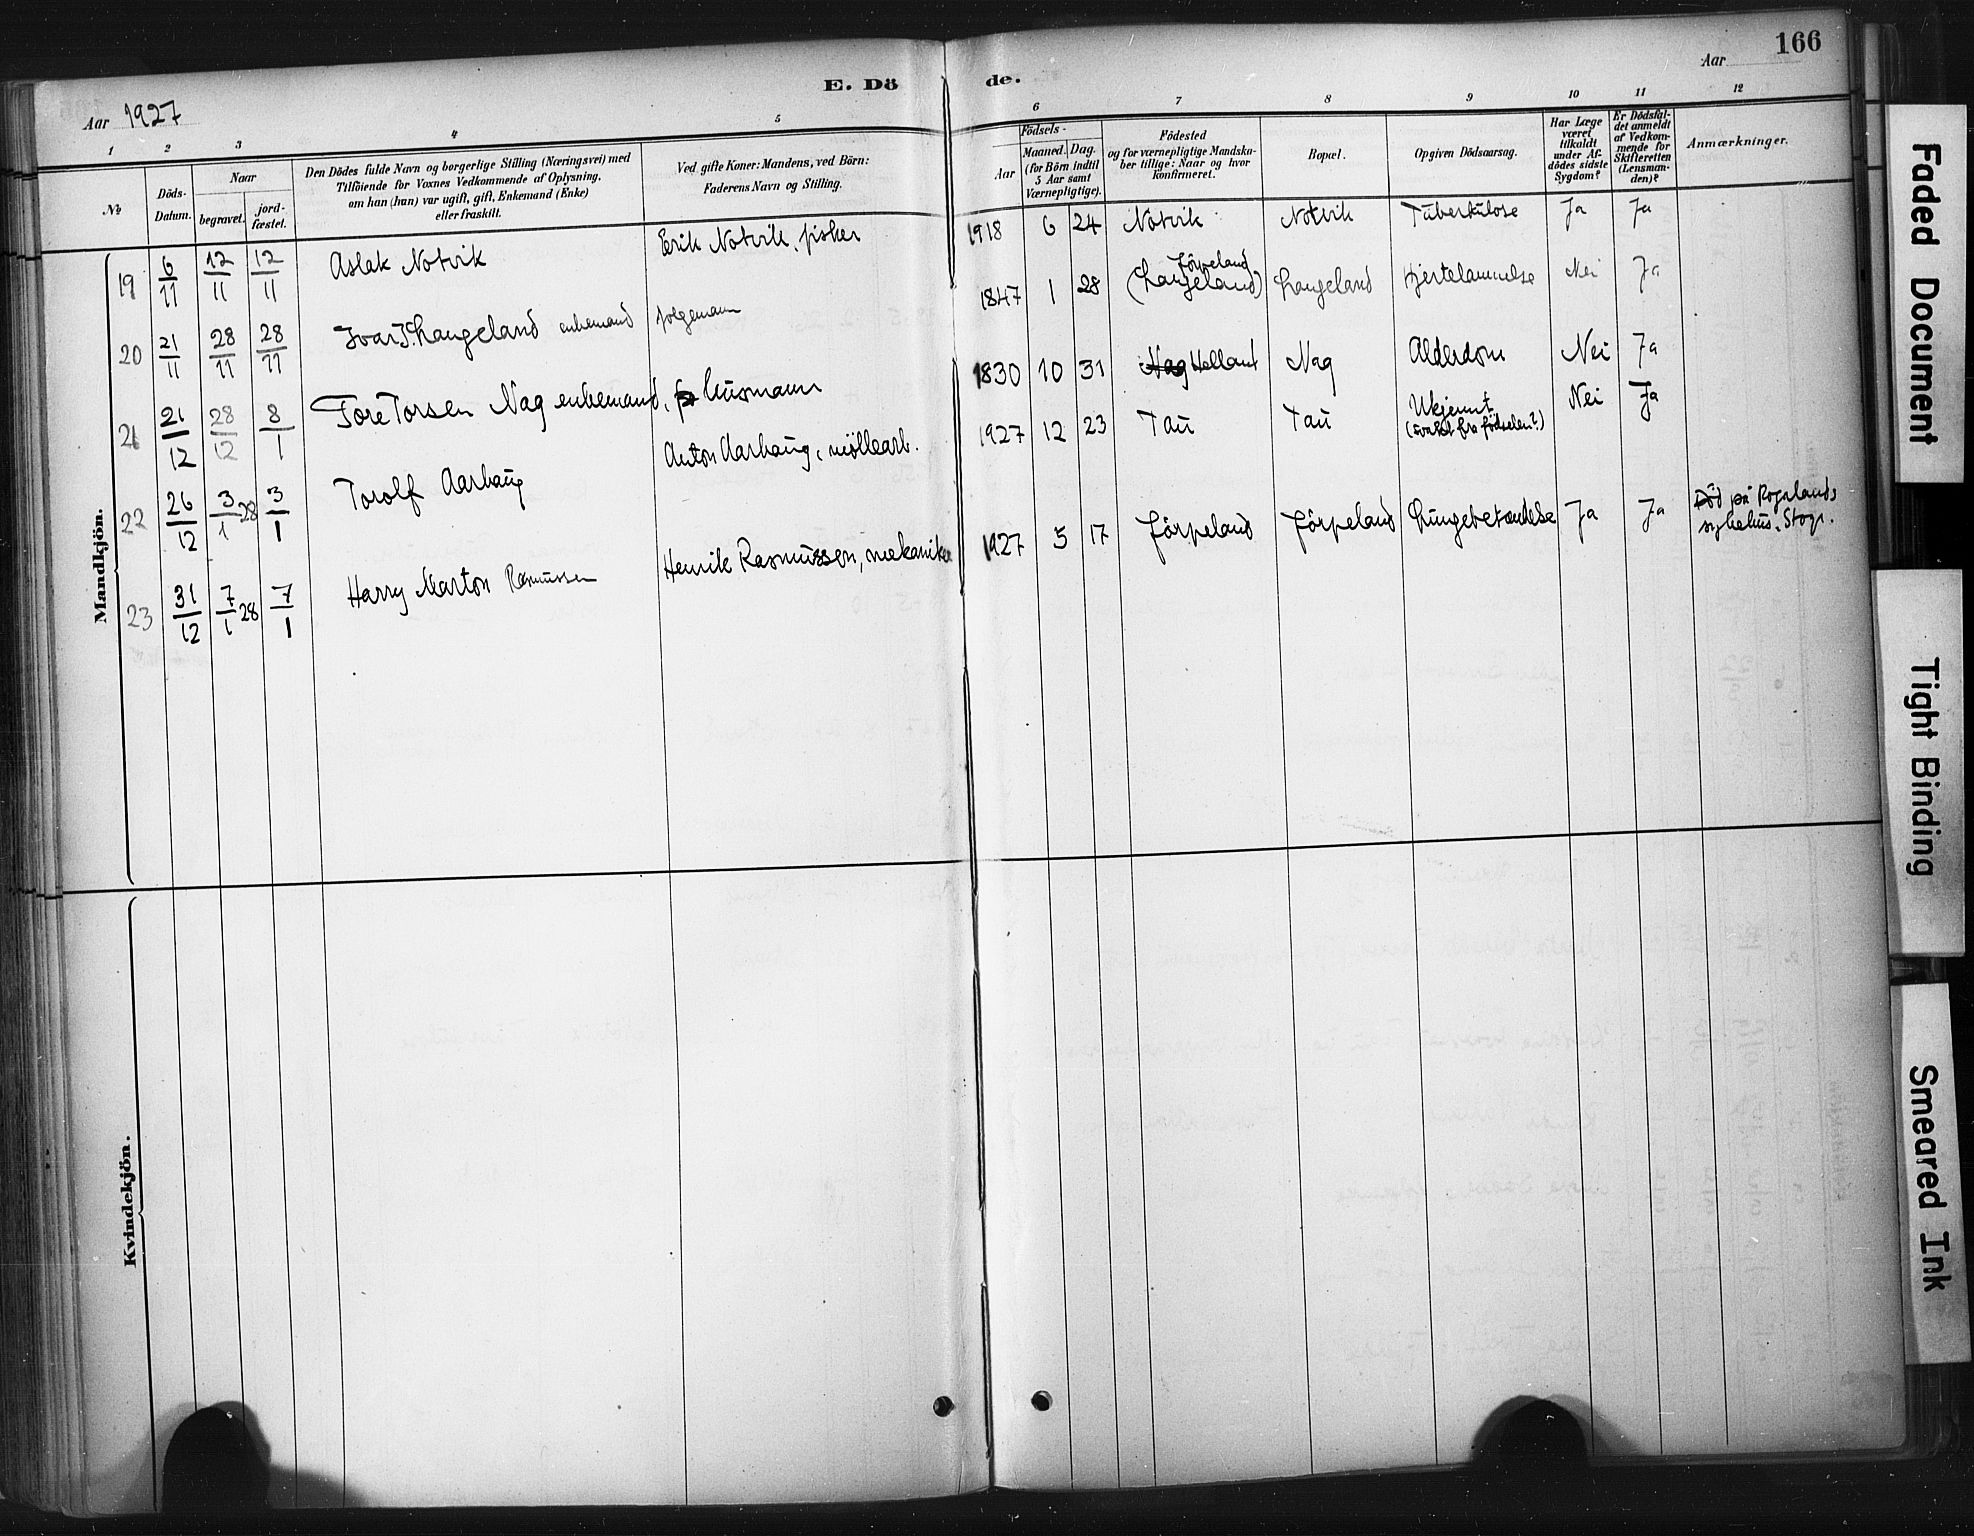 166
E. Dö de.
Aar
Aar 1927
1 2 3 4 5 6 7 8 9 10 11 12
№
Döds-Datum.
Naar
begravet.
jord-fæstet.
Den Dödes fulde Navn og borgerlige Stilling (Næringsvei) med
Tilföiende for Voxnes Vedkommende af Oplysning,
om han (hun) var ugift, gift, Enkemand (Enke)
eller fraskilt.
Ved gifte Koner: Mandens, ved Börn:
Faderens Navn og Stilling.
Födsels-
Aar
Maaned. Dag.
(for Börn indtil
5 Aar samt
Værnepligtige).
Födested
og for værnepligtige Mandska-
ber tillige: Naar og hvor
konfirmeret.
Bopæl.
Opgiven Dödsaarsag.
Har Læge
været
tilkaldt
under Af-
dödes sidste
Sygdom?
Er Dödsfal-
det anmeldt
af Vedkom-
mende for
Skifteretten
(Lensman-
den)?
Anmærkninger.
Mandkjön.
19 6/11 12/11 12/11 Aslak Notvik Erik Notvik, fisker 1918 6 24 Notvik Notvik Tuberkulose Ja Ja
20 21/11 28/11 28/11 Ivar I. Langeland enkemand folgemann 1847 1 28 Jörpeland (Langeland) Langeland Hjertelammelse Nei Ja
21 21/12 28/12 8/1 Tore Torsen Nag enkemand, husmann 1830 10 31 Nag Helland Nag Alderdom Nei Ja
22 26/12 3/1 28 3/1 Torolf Aarhaug Anton Aarhaug, möllearb. 1927 12 23 Tau Tau Ukjennt (svakt fra födselen?) Nei Ja
23 31/12 7/1 28 7/1 Harry Marton Rasmussen Henrik Rasmussen, mekaniker 1927 5 17 Jörpeland Jörpeland Lungebetændelse Ja Ja Död på Rogalands
sykehus, Stvgr.
Kvindekjön.
Faded Document
Tight Binding
Smeared Ink